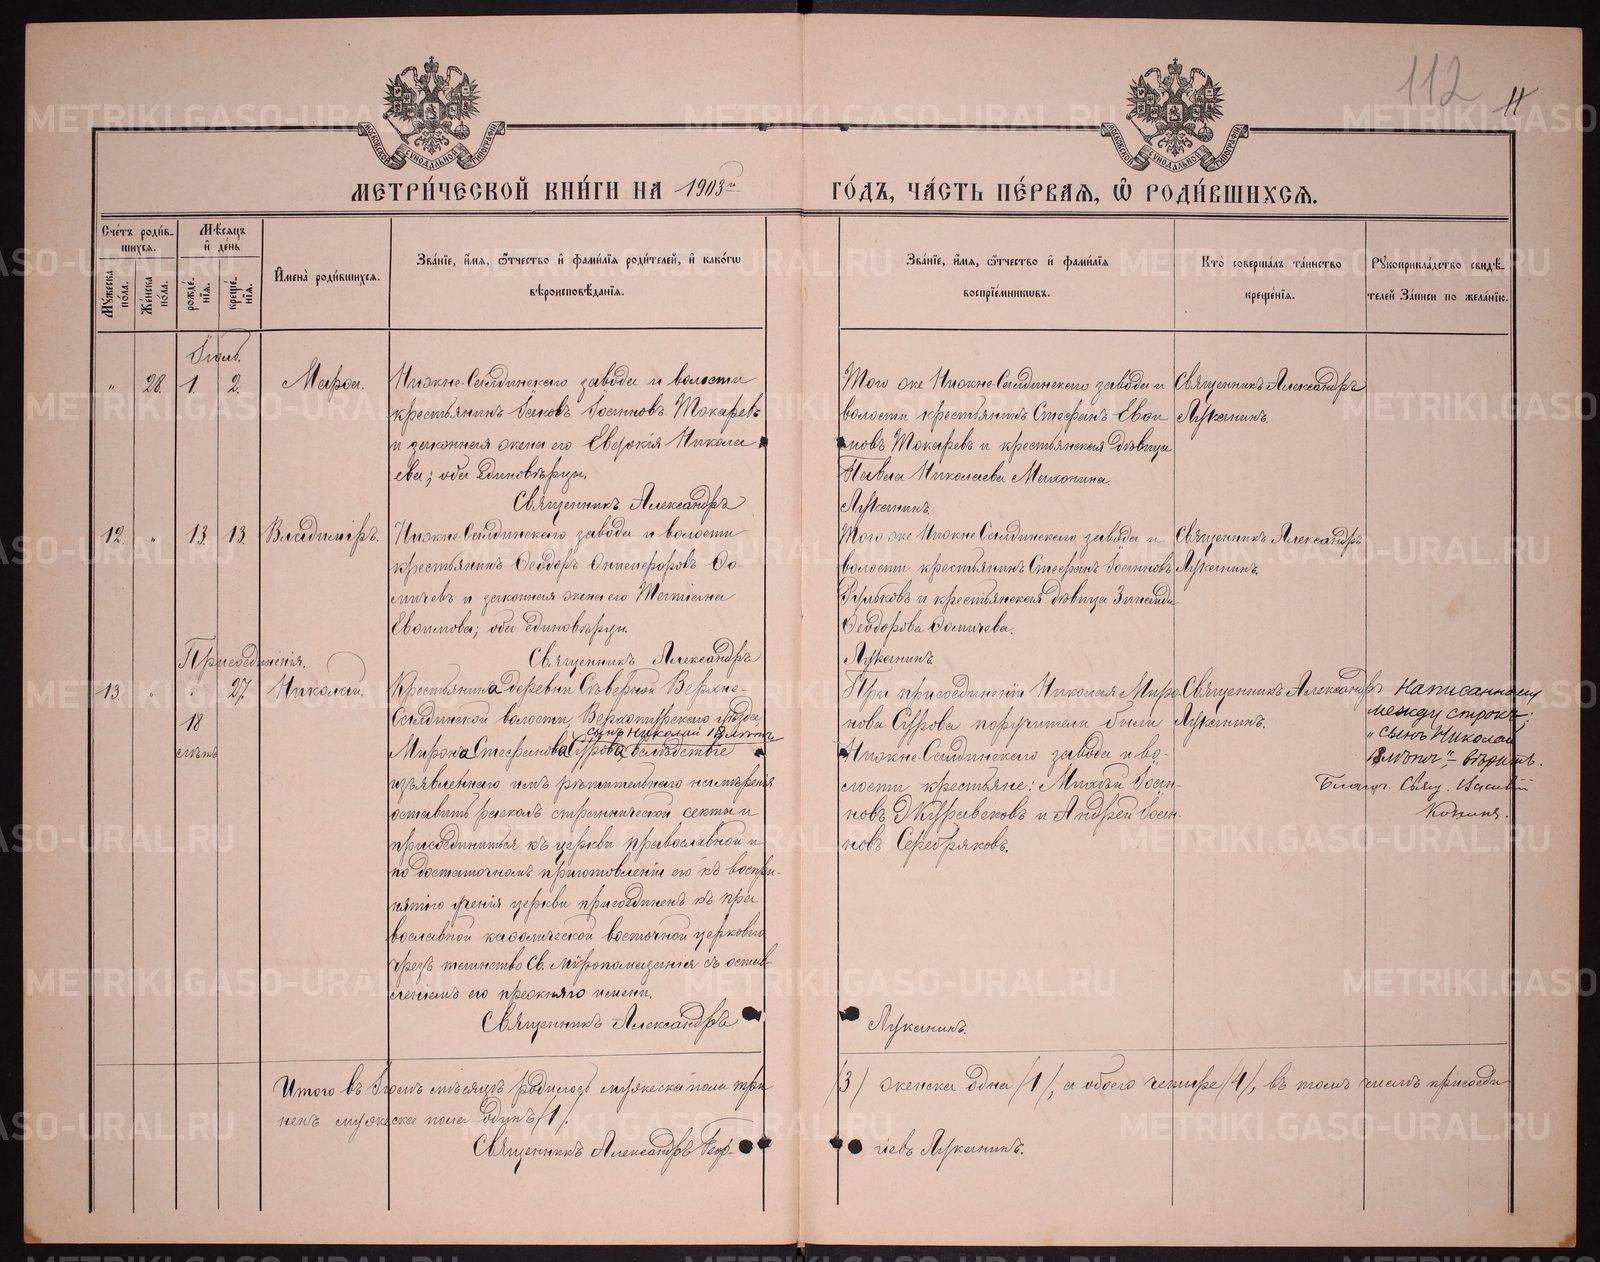 112
11
МОСКОВСКОЙ СѴНОДАЛЬНОЙ ТИПОГРАФІИ
МОСКОВСКОЙ СѴНОДАЛЬНОЙ ТИПОГРАФІИ
МЕТРИ́ЧЕСКОЙ КНИ́ГИ НА 1903й
ГО́ДЪ, ЧА́СТЬ ПЕ́РВАЯ, Ѡ РОДИ́ВШИХСЯ.
Сче́тъ роди́в-
шихся.
Мѣсяцъ
и де́нь
Му́жеска по́ла.
Же́нска по́ла.
рожде́-
нія.
креще́-
нія.
Имена̀ роди́вшихся.
Зва́ніе, и́мя, ѻ́тчество и фами́лія роди́телей, и како́гѡ
вѣроисповѣ́данія.
Зва́ніе, и́мя, ѻ́тчество и фами́лія
воспріе́мниковъ.
Кто̀ соверша́лъ та́инство
креще́нія.
Рукоприкла́дство свидѣ́-
телей За́писи по жела́нію.
Іюль.
" 28. 1. 2. Мара.
Нижне-Салдинскаго завода и волости
крестьянинъ Іаковъ Іоанновъ Токаревъ
и законная жена его Евдокія Никола
ева; оба Единовѣрцы.
Священникъ Александръ
Того же Нижне-Салдинскаго завода и
волости крестьянинъ Стефанъ Еван
новъ Токаревъ и крестьянская дѣвица
Павла Николаева Махонина.
Лукининъ.
Священникъ Александръ
Лукининъ.
12. " 13. 13. Владиміръ.
Нижне-Салдинскаго завода и волости
крестьянинъ Ѳеодоръ Онисифоровъ Ѳо
мичевъ и законная жена его Татіана
Евѳимова; оба единовѣрцы.
Священникъ Александръ
Того же Нижне-Салдинскаго завода и
волости крестьянинъ Стефанъ Іоанновъ
и крестьянская дѣвица Зинаида
Ѳеодорова Ѳомичева.
Лукининъ.
Священникъ Александръ
Лукининъ.
Присоединенія.
13. " " 27. Николай.
18
лѣтъ
Крестьянина деревни Сѣверной Верхне-
Салдинской волости, Верхотурскаго уѣзда
сынъ Николай 18 лѣтъ
Мирона Стефанова Сурова, вслѣдствіе
изъявленнаго имъ рѣшительнаго намѣренія
оставить расколъ страннической секты и
присоединиться къ церкви православной и
по достаточномъ приготовленіи его къ воспри-
нятію ученія церкви присоединенъ къ пра
вославной каѳолической восточной церкви
чрезъ таинство Св. Мѵропомазанія съ остав-
леніемъ его прежняго имени.
Священникъ Александръ
При присоединеніи Николая Миро
нова Сурова поручители были
Нижне-Салдинскаго завода и во-
лости крестьяне: Михаилъ Іоан-
новъ Журавековъ и Андрей Іоан-
новъ Серебряковъ.
Лукининъ.
Священникъ Александръ
Лукининъ.
Написанному
между строкъ:
"сынъ Николай
18 лѣтъ" – вѣрить.
Благоч. Свящ. Василій
Итого въ Іюлѣ мѣсяцѣ родилось мужеска пола три
/3/ женска одна /1/, а обоего четыре /4/, въ томъ числѣ присоеди
ненъ мужеска пола одинъ /1/.
Священникъ Александръ Геор-
гіевъ Лукининъ.
METRIKI.GASO-URAL.RU